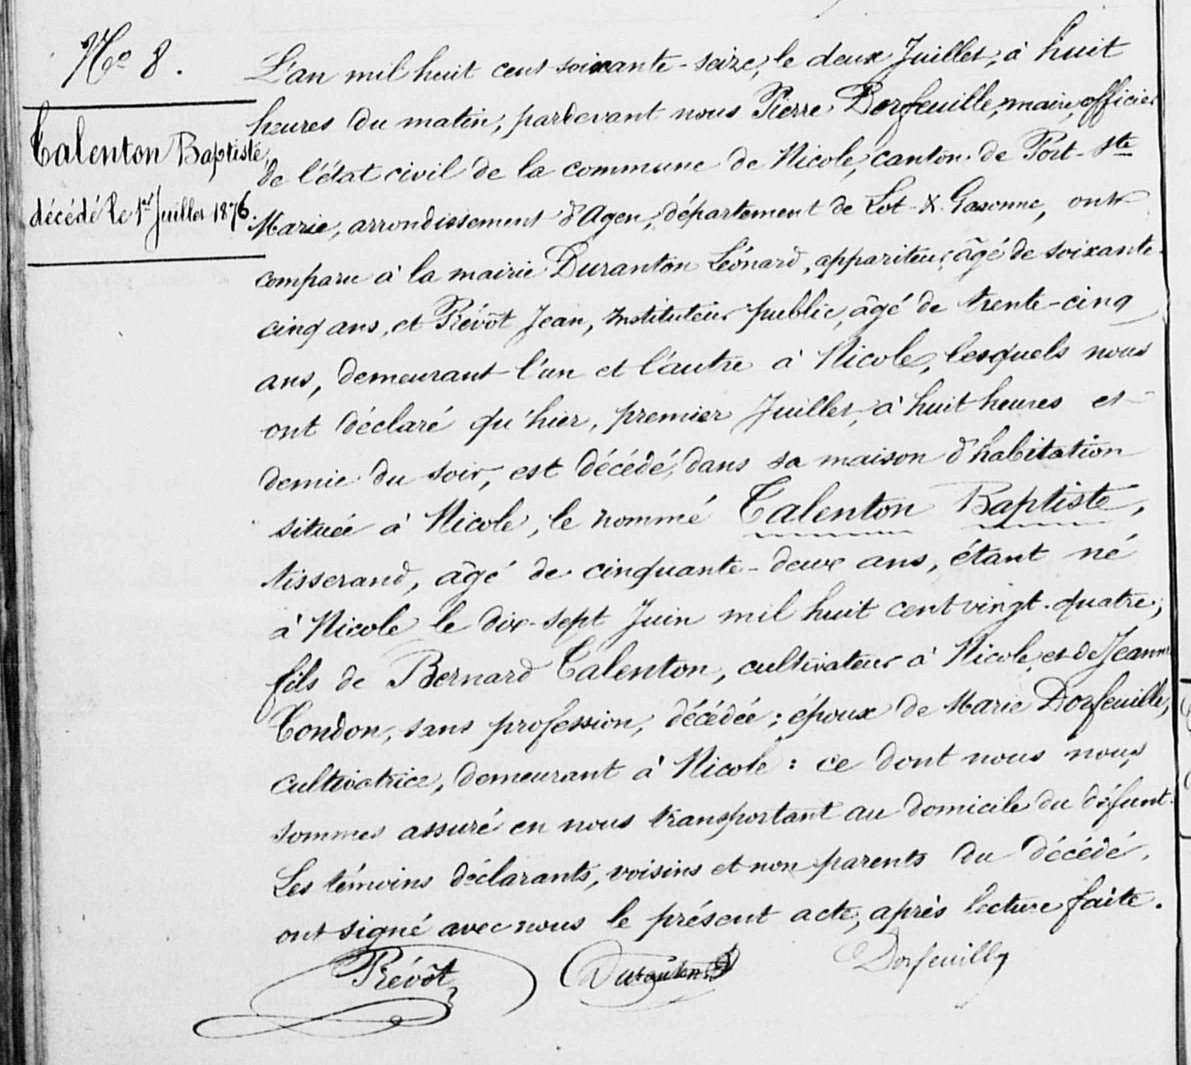 No 8.
Talenton Baptiste,
décédé le 1er Juillet 1876.
L'an mil huit cent soixante-seize, le deux Juillet, à huit
heures du matin, pardevant nous Pierre Dorfeuille, maire, officier
de l'état civil de la commune de Nicole, canton de Port-Ste
Marie, arrondissement d'Agen, département de Lot-&-Garonne, ont
comparu à la mairie Duranton Léonard, appariteur, âgé de soixante-
cinq ans, et Prévôt Jean, Instituteur public, âgé de trente-cinq
ans, demeurant l'un et l'autre à Nicole, lesquels nous
ont déclaré qu'hier, premier Juillet, à huit heures et
demie du soir, est décédé, dans sa maison d'habitation
située à Nicole, le nommé Talenton Baptiste,
tisserand, âgé de cinquante-deux ans, étant né
à Nicole le dix-sept Juin mil huit cent vingt-quatre,
fils de Bernard Talenton, cultivateur à Nicole, et de Jeanne
Condon, sans profession, décédée; époux de Marie Dorfeuille,
cultivatrice, demeurant à Nicole: ce dont nous nous
sommes assuré en nous transportant au domicile du défunt.
Les témoins déclarants, voisins et non parents du décédé,
ont signé avec nous le présent acte, après lecture faite.
Prévôt Duranton Dorfeuille